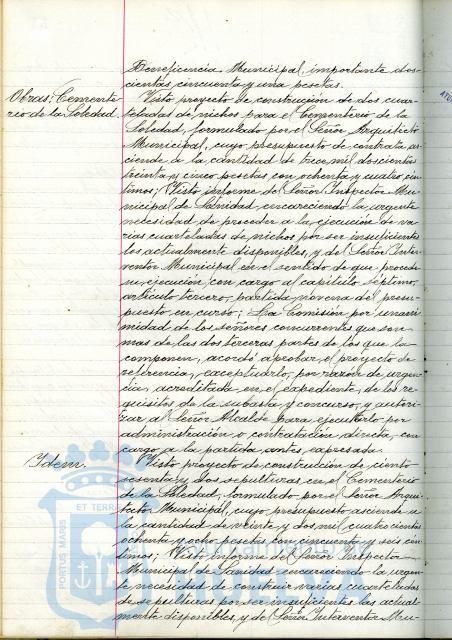 Beneficencia Municipal, importante dos-
cientas cincuenta y una pesetas.
Obras: Cemente-
rio de la Soledad.
Visto proyecto de construcción de dos cuar-
teladas de nichos para el Cementerio de la
Soledad, formulado por el Señor Arquitecto
Municipal, cuyo presupuesto de contrata as-
ciende a la cantidad de trece mil doscientas
treinta y cinco pesetas con ochenta y cuatro cén-
timos; Visto informe del Señor Inspector Mu-
nicipal de Sanidad, encareciendo la urgente
necesidad de proceder a la ejecución de va-
rias cuarteladas de nichos por ser insuficientes
los actualmente disponibles, y del Señor Inter-
ventor Municipal en el sentido de que procede
su ejecución con cargo al capítulo séptimo,
artículo tercero, partida novena del presu-
puesto en curso; La Comisión por unani-
midad de los señores concurrentes que son
mas de las dos terceras partes de los que la
componen, acordó aprobar el proyecto de
referencia, exceptuarlo, por razón de urgen-
cia, acreditada en el expediente, de los re-
quisitos de la subasta y concurso, y autori-
zar al Señor Alcalde para ejecutarlo por
administración o contratación directa, con
cargo a la partida antes expresada.
Idem.
Visto proyecto de construcción de ciento
sesenta y dos sepulturas en el Cementerio
de la Soledad, formulado por el Señor Arqui-
tecto Municipal, cuyo presupuesto asciende a
la cantidad de veinte y dos mil cuatrocientas
ochenta y ocho pesetas con cincuenta y seis cén-
timos; Visto informe del Señor Inspector
Municipal de Sanidad encareciendo la urgen-
te necesidad de construir varias cuarteladas
de sepulturas por ser insuficientes las actual-
mente disponibles, y del Señor Interventor Mu-
PORTUS MARIS
ET TERRA
HUELVA